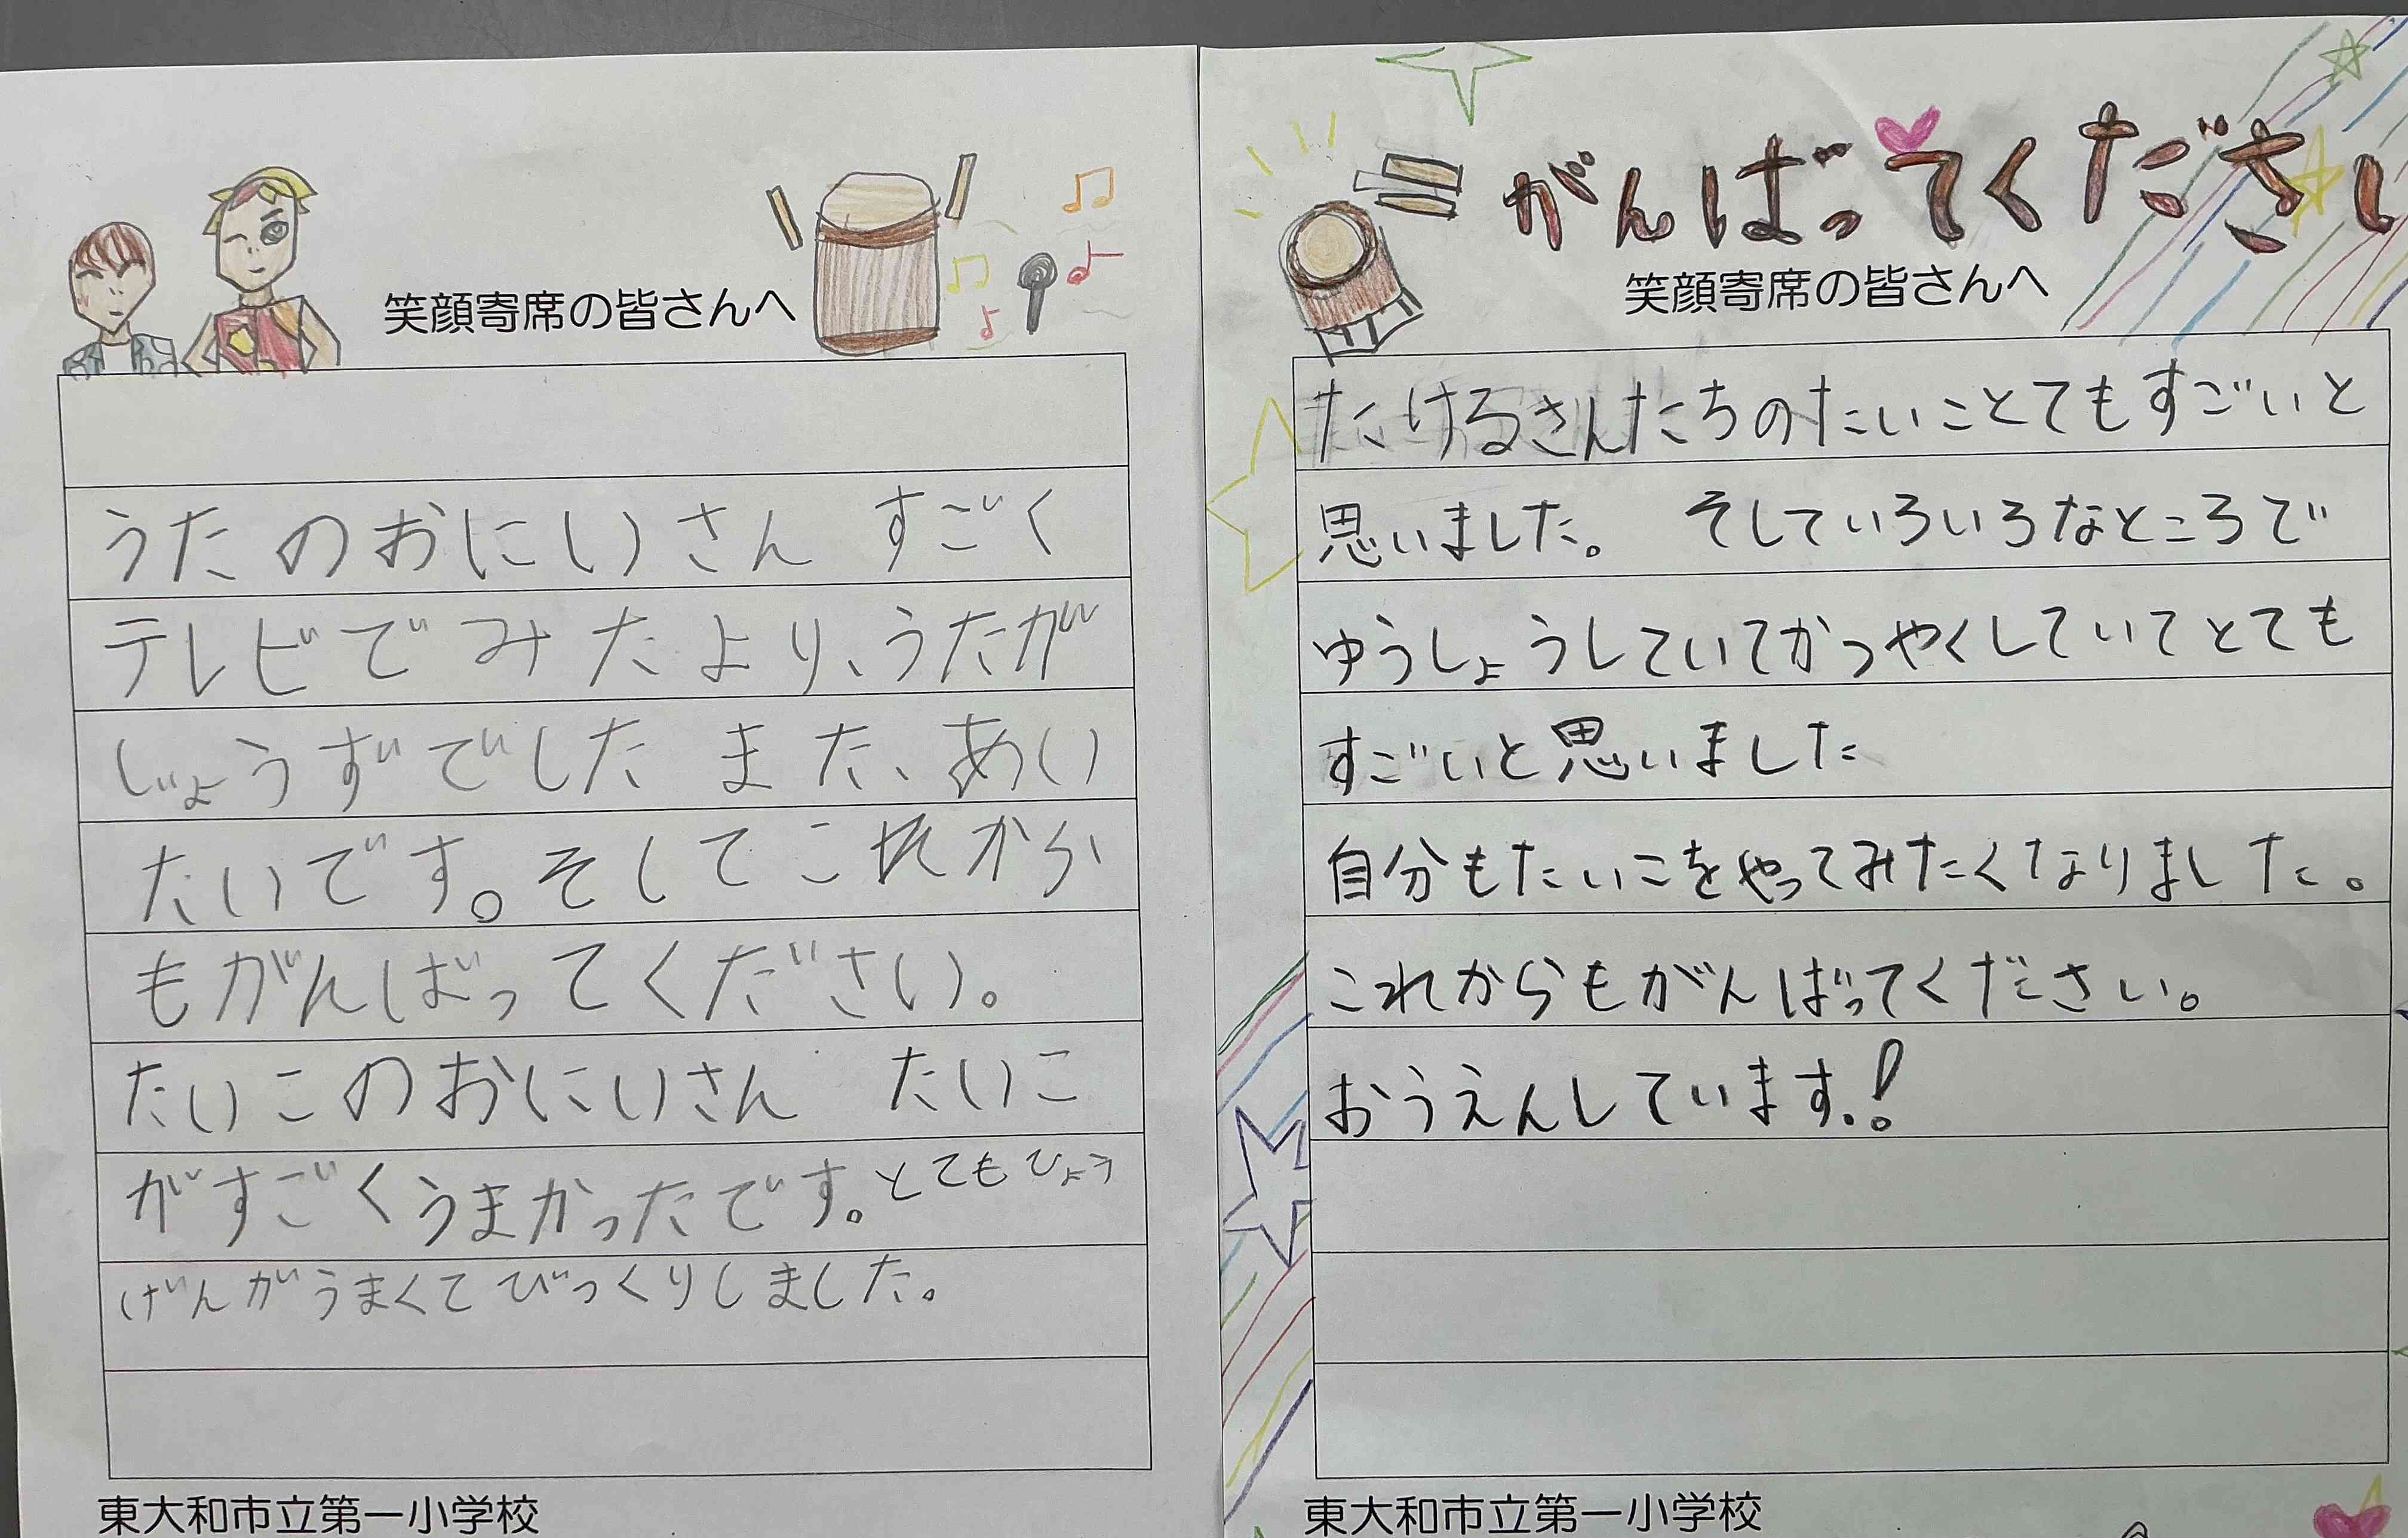 笑顔寄席の皆さんへ
うたのおにいさん すごく
テレビでみたより、うたが
じょうずでした また、あい
たいです。そしてこれから
もがんばってください。
たいこのおにいさん たいこ
がすごくうまかったです。とてもひょう
げんがうまくてびっくりしました。
東大和市立第一小学校
がんばってくださし
笑顔寄席の皆さんへ
たけるさんたちのたいことてもすごいと
思いました。 そしていろいろなところで
ゆうしょうしていてかつやくしていてとても
すごいと思いました
自分もたいこをやってみたくなりました。
これからもがんばってください。
おうえんしています.!
東大和市立第一小学校